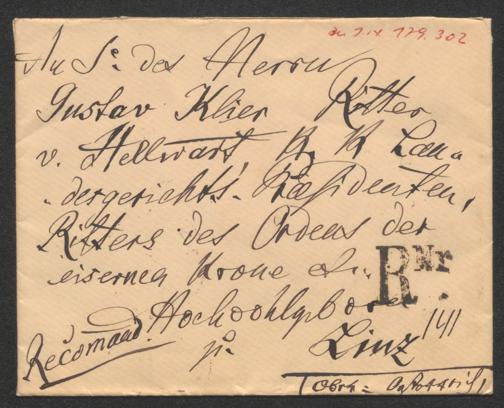 An Sr. des Herrn
Gustav Klier Ritter
v. Hellwart, K. K Lan-
-dergerichts'. Præsidenten,
Ritters des Ordens der
eisernen Krone &.
Hochwohlgboren
R Nr
141
Recomand.
Linz
Ober= Östereich